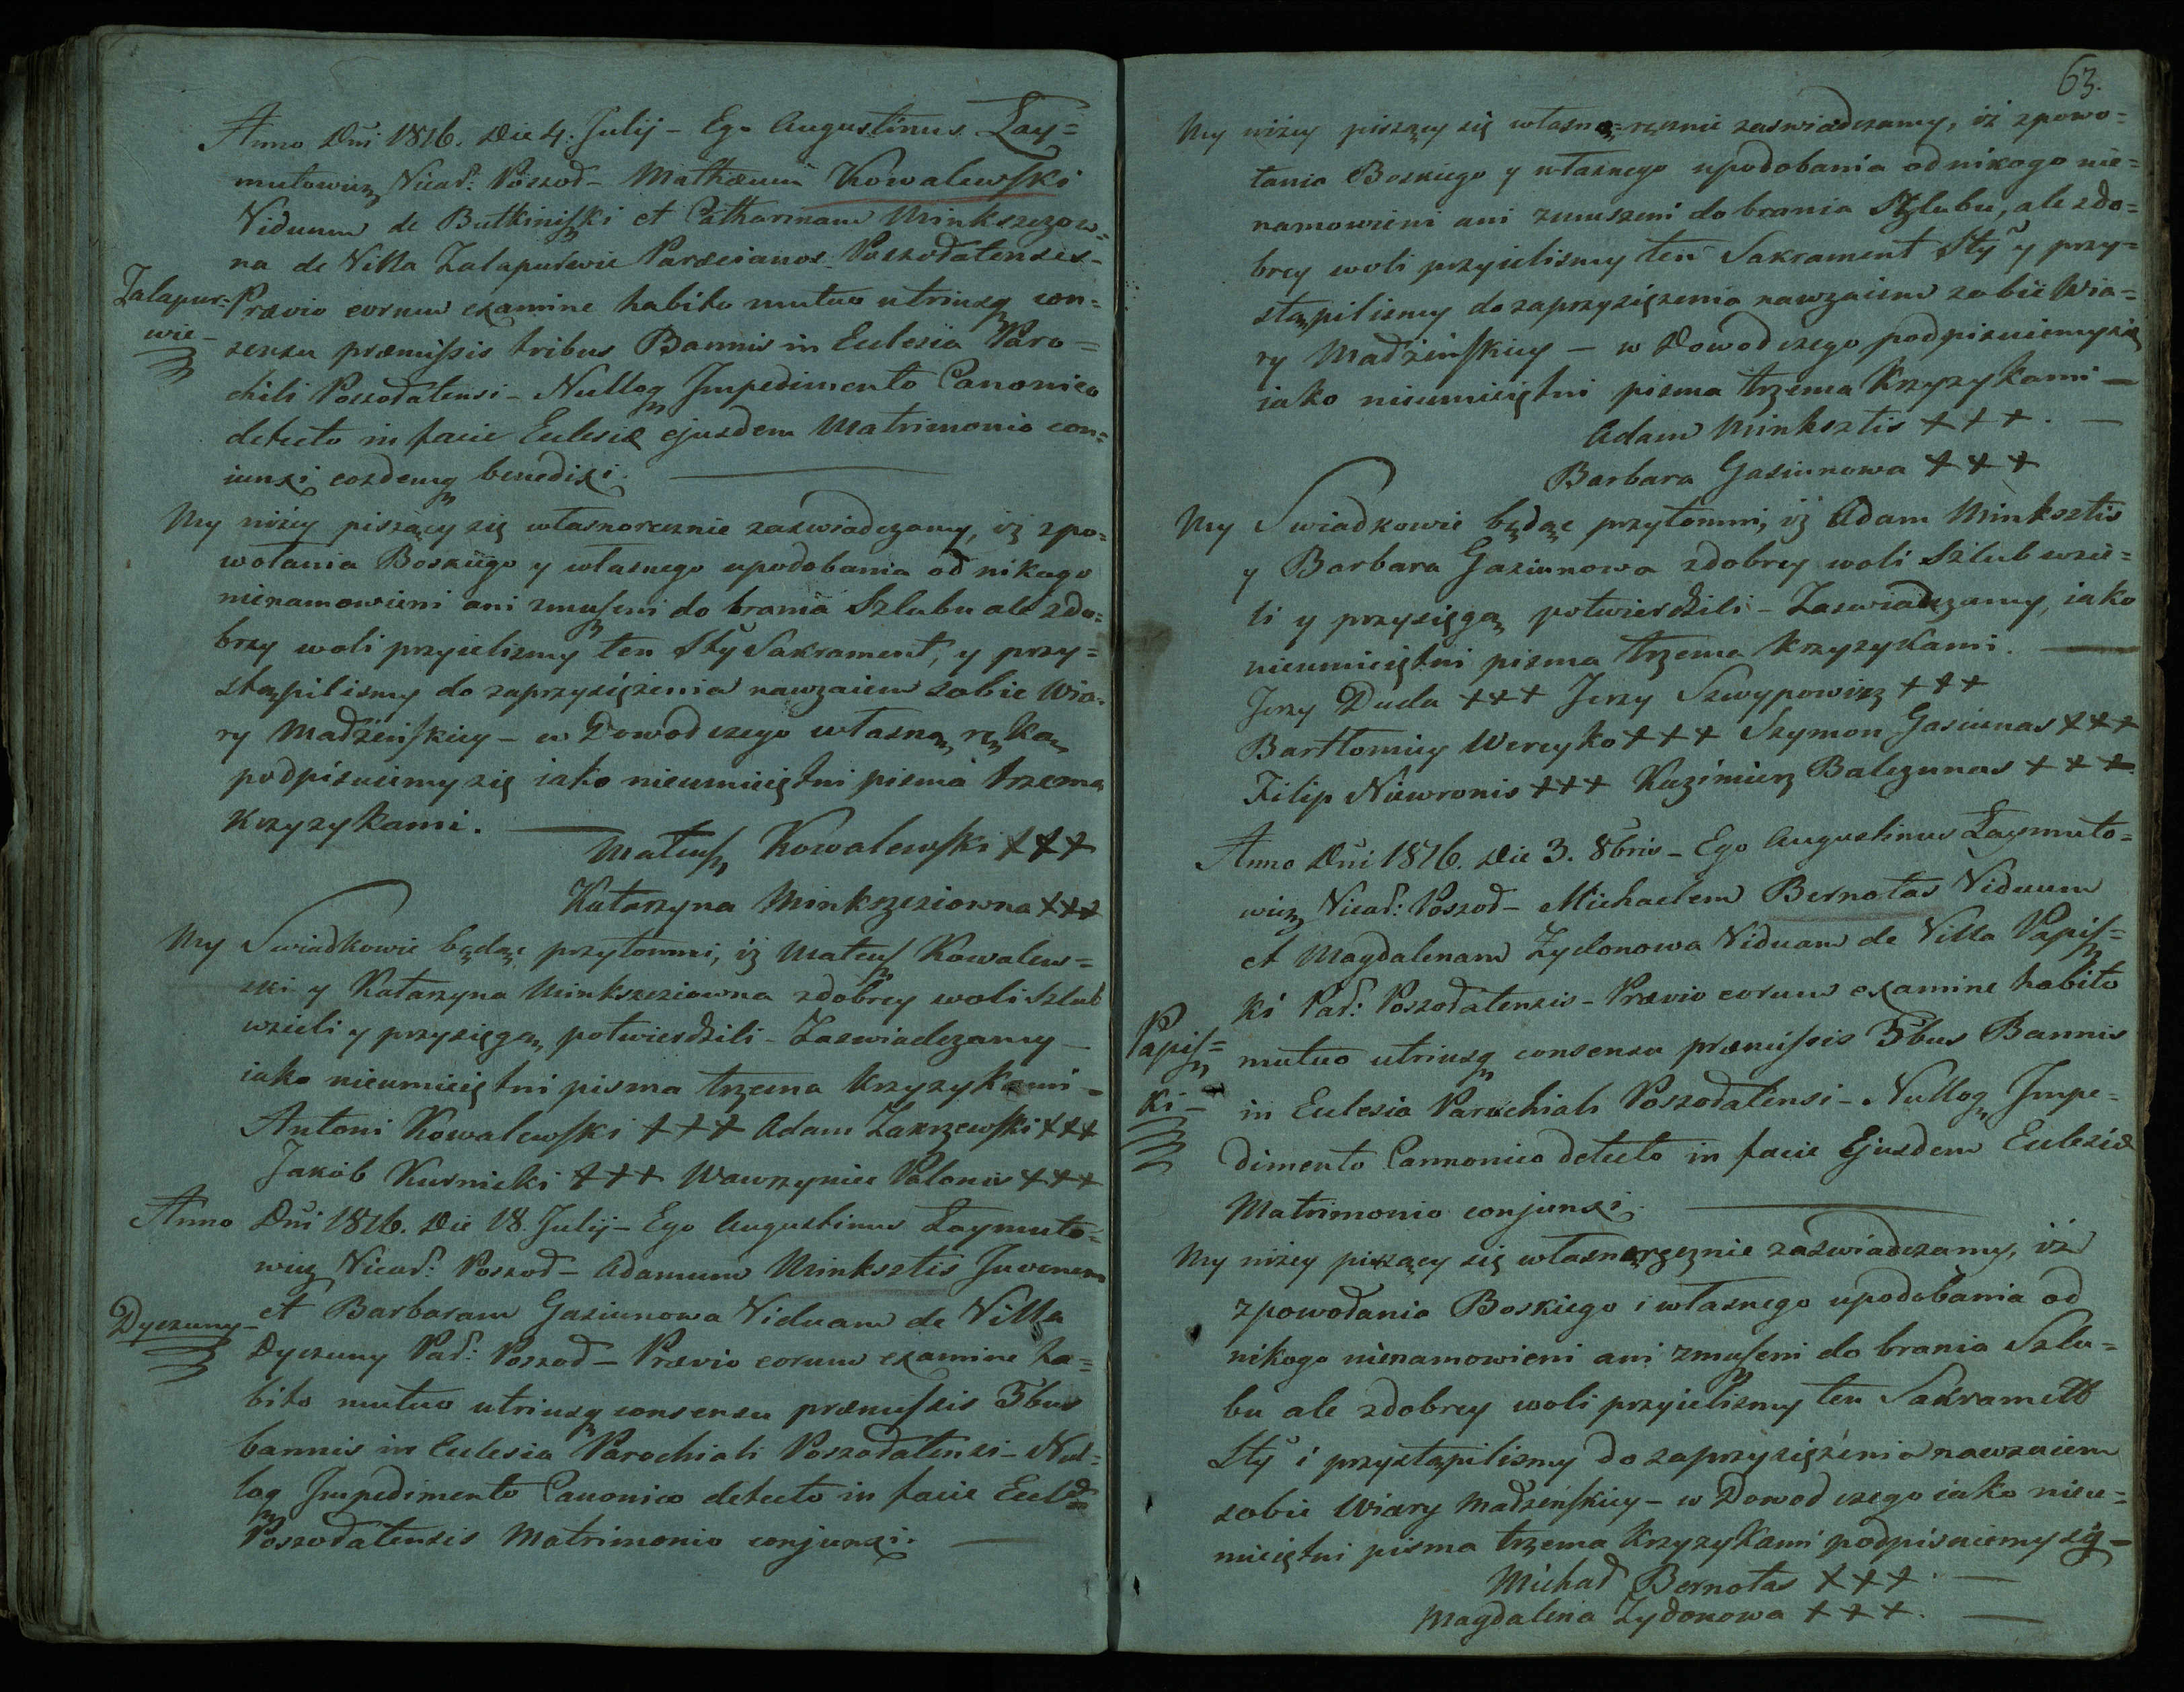 Anno Dni 1816. Die 4. Julij - Ego Augustinus Zay=
mutowicz Vicar: Poszod- Mathæum Kowalewski
Viduum de Butkiniszki et Catharinam Minkszczow=
na de Villa Zalapurwie Paræcianos Poszodatenses-
Zalapur=
wie-
Prævio eorum examine habito mutuo utriusq con=
sensu præmissis tribus Bannis in Eclesia Paro=
chili Poszodatensi - Nulloq Impedimento Canonico
detecto in facie Eclesiæ ejusdem Matrimonio con=
iunxi eosdemq benedixi.
My niżey piszący się własnoręcznie zaswiadczamy, iż zpo=
wołania Boskiego y własnego upodobania od nikogo
nienamowieni ani zmuszeni do brania Szlubu ale zdo=
brey woli przyielismy ten Sty Sakrament, y przy=
stąpilismy do zaprzysiężenia nawzaiem sobie Wia=
ry Madżeńskiey - w Dowod czego własną ręką
podpisuiemy się iako nieumieiętni pisma trzema
Krzyzykami.
Mateusz Kowalewski +++
Katarzyna Minkszeziowna +++
My Swiadkowie będąc przytomni, iż Mateusz Kowalew=
ski y Katarzyna Minkszeziowna zdobrey woli Szlub
wzieli y przysięgą potwierdzili - Zaswiadczamy -
iako nieumieiętni pisma trzema Krzyzykami -
Antoni Kowalewski +++ Adam Zakrzewski +++
Jakób Kurnicki +++ Wawrzyniec Polonis +++
Anno Dni 1816. Die 18. Julij - Ego Augustinus Zaymuto=
wicz Vicar: Poszod - Adamum Minksztis Juvenem
Dyczuny-
et Barbaram Gasiunowa Viduam de Villa
Dyczuny Par: Poszod - Prævio eorum examine ha=
bito mutuo utriusq consensu præmissis 3bus
bannis in Eclesia Parochiali Poszodatensi - Nul=
loq Impedimento Canonico detecto in facie Eclæ
Poszodatensis Matrimonio conjunxi.
63.
My niżey piszący się własno=ręcznie zaswiadczamy, iż zpowo=
łania Boskiego y własnego upodobania od nikogo nie=
namowieni ani zmuszeni do brania Szlubu, ale zdo=
brey woli przyielismy ten Sakrament Sty y przy=
stąpilismy do zaprzysiężenia nawzaiem sobie Wia=
ry Madżeńskiey - w Dowod czego podpisuiemy się
iako nieumieiętni pisma trzema Krzyzykami -
Adam Minksztis +++.
Barbara Gasiunowa +++
My Swiadkowie będąc przytomni, iż Adam Minksztis
y Barbara Gasiunowa zdobrey woli Szlub wzie=
li y przysięgą potwierdzili - Zaswiadczamy, iako
nieumieiętni pisma trzema Krzyzykami.
Jerzy Duda +++ Jerzy Szwypowicz +++
Bartłomiey Wereyko +++ Szymon Gasiunas +++
Filip Niewronis +++ Kazimierz Balczunas +++
Anno Dni 1816. Die 3. 8bris - Ego Augustinus Zaymuto=
wicz Vicar: Poszod - Michaelem Bernotas Viduum
et Magdalenam Zydonowa Viduam de Villa Papisz=
ki Par: Poszodatensis - Prævio eorum examine habito
Papisz=
ki -
mutuo utriusq consensu præmissis 3bus Bannis
in Eclesia Parochiali Poszodatensi - Nulloq Impe=
dimento Cannonico detecto in facie Ejusdem Eclesiæ
Matrimonio conjunxi.
My niżey piszący się własnoręcznie zaswiadczamy, iż
zpowołania Boskiego i własnego upodobania od
nikogo nienamowieni ani zmuszeni do brania Szlu=
bu ale zdobrey woli przyielismy ten Sakrament
Sty i przystąpilismy do zaprzysiężenia nawzaiem
sobie Wiary Madżeńskiey - w Dowod czego iako nieu=
mieiętni pisma trzema Krzyzykami podpisuiemy się -
Michał Bernotas +++.
Magdalena Zydonowa +++.